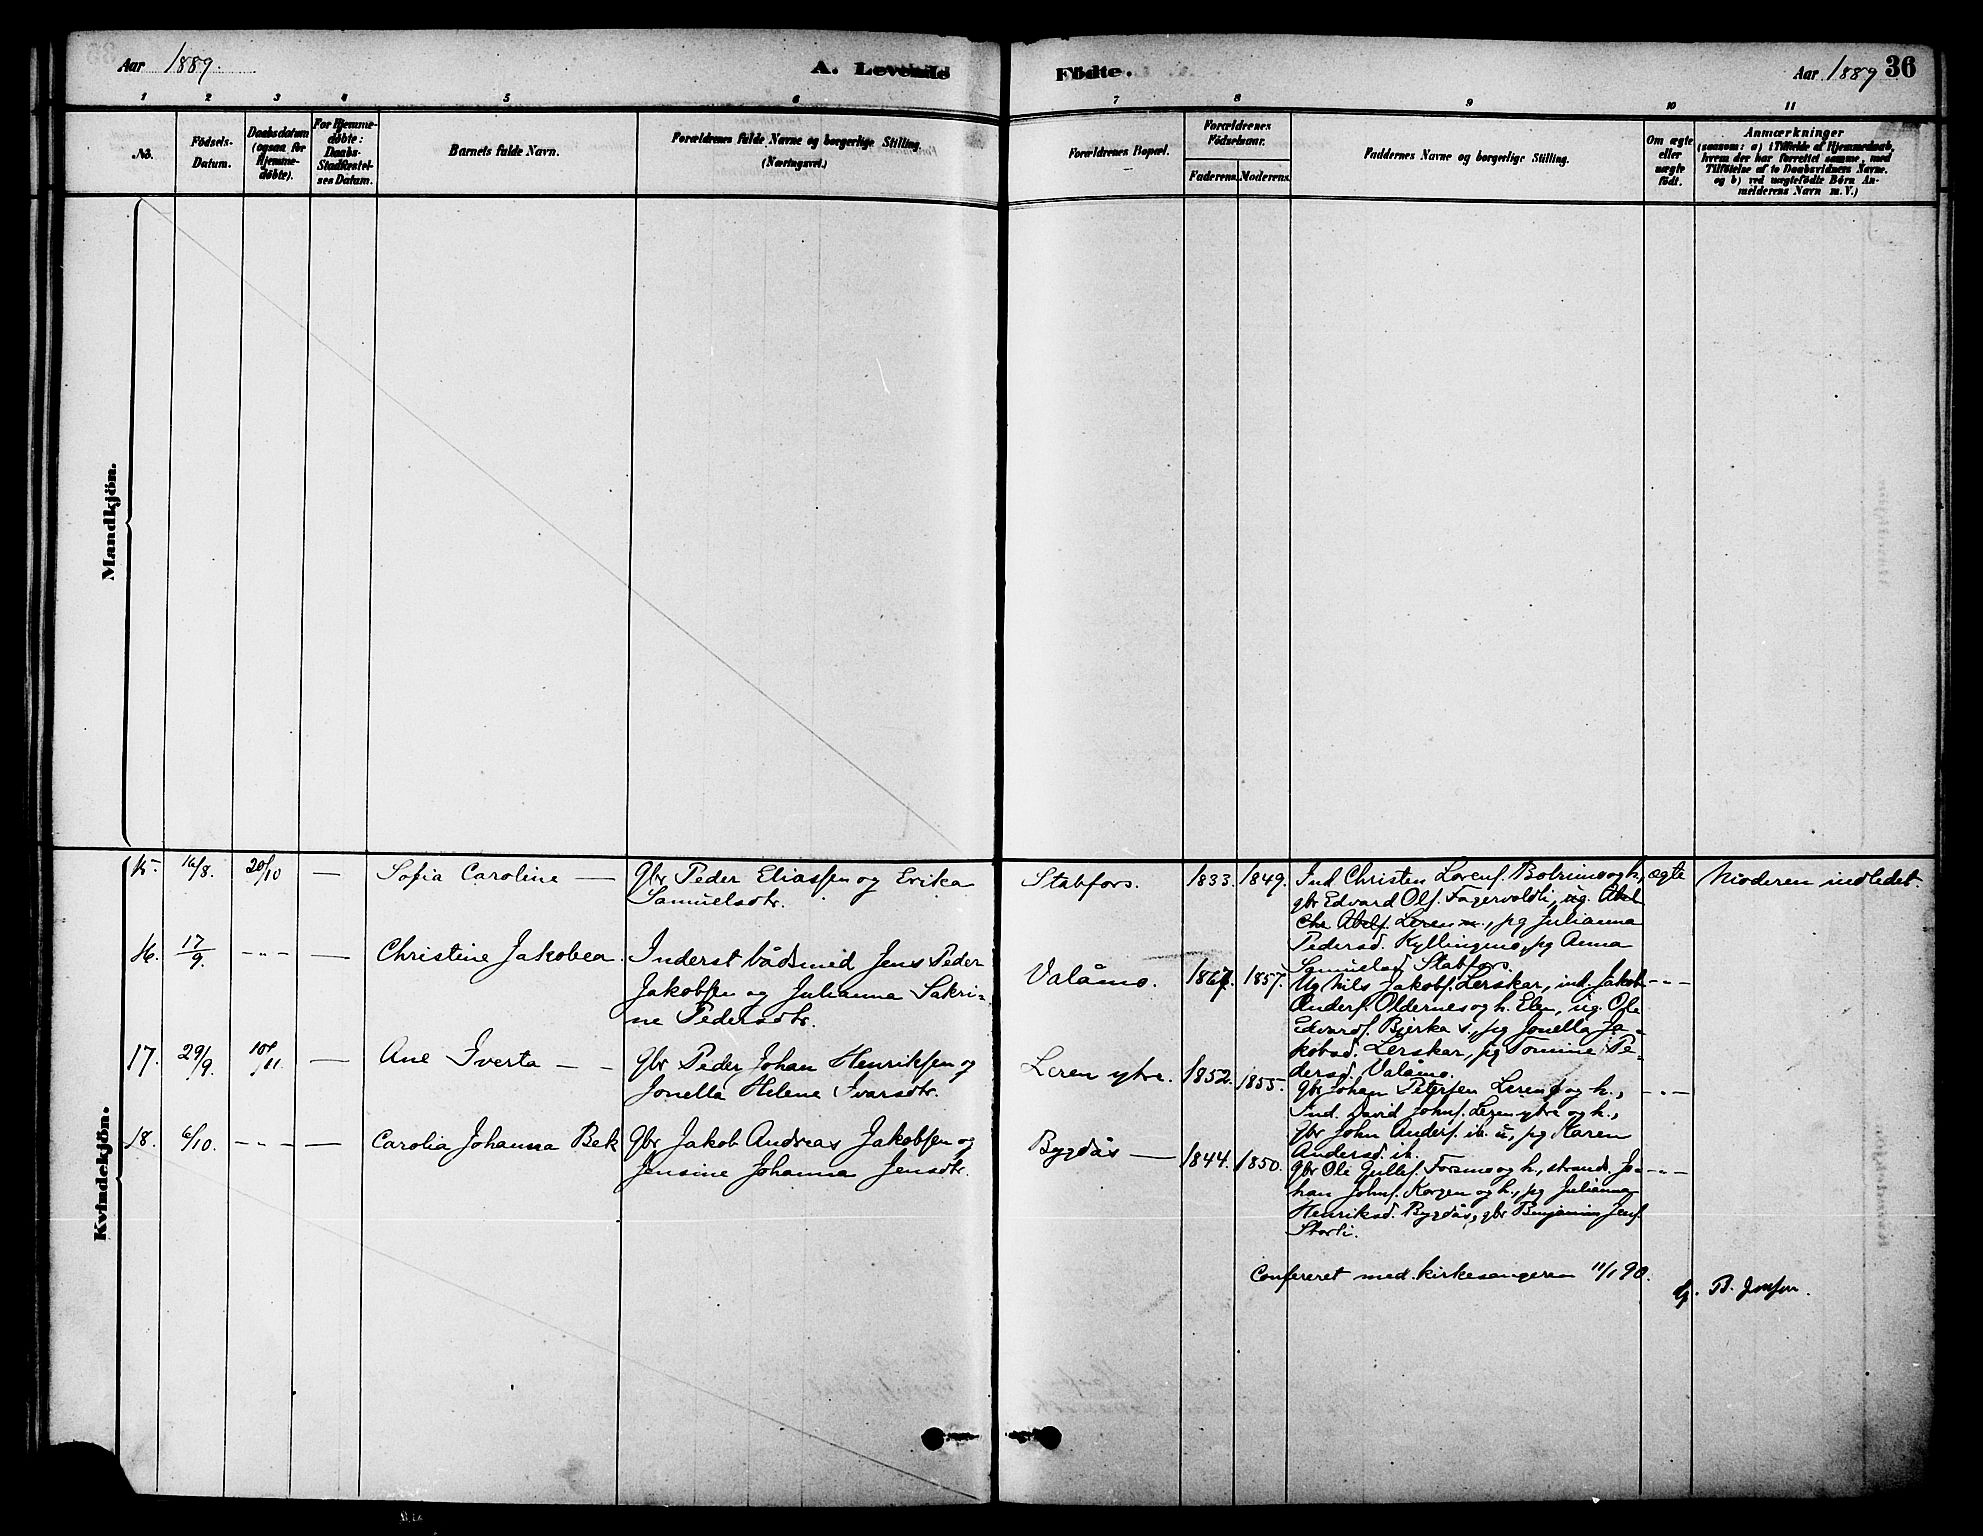 Aar 1889.
A. Levende
Födte.
Aar 1889
36
1 2 3 4 5 6
7 8 9 10 11
No.
Födsels-
Datum.
Daabsdatum
(ogsaa for
Hjemme-
döbte).
For Hjemme-
döbte:
Daabs-
Stadfæstel-
ses Datum.
Barnets fulde Navn.
Forældrenes fulde Navne og borgerlige Stilling
(Næringsvei.)
Forældrenes Bopæl.
Forældrenes
Födselsaar.
Faderens.
Moderens.
Faddernes Navne og borgerlige Stilling.
Om ægte
eller
uægte
født.
Anmærkninger
(saasom: a) i Tilfælde af Hjemmedaab,
hvem der har forrettet samme, med
Tilföielse af to Daabsvidners Navne.
og b) ved uægtefödte Börn An-
melderens Navn m. V.)
Mandkjön.
Kvindekjön.
15. 16/8. 20/10 — Sofia Caroline — Gbr Peder Eliassen og Erika
Samuelsdtr.
Stabfors. 1833. 1849. Ind Christen Lorens. Botnmo og h.,
gbr Edvard Ols. Fagervoldli, ug.
Leren, pg Julianna
Pedersd. Kyllingmo, pg Anna
Samuelsd Stabfors.
ægte
Moderen indledet.
16. 17/9. -"- — Christine Jakobea. Inderst bådsmed Jens Peder
Jakobsen og Julianna Sakri-
ne Pedersdtr.
Valåmo. 1867. 1857. Ug Nils Jakobs. Lerskar, ind. Jakob
Anders. Oldernes og h. Elen, ug. Ole
Edvards. Bjerka s., pg Jonella Ja-
kobsd. Lerskar, pg Tomine Pe-
dersd. Valåmo.
-"-
17. 29/9. 10/11. — Ane Iverta — — Gbr Peder Johan Henriksen og
Jonella Helene Ivarsdtr.
Leren ytre. 1852. 1855. Gbr Johan Petersen Leren og h.,
Ind. David Johns. Leren ytre og h.,
gbr John Anders. ib. u, pg Karen
Andersd. ib.
-"-
18. 6/10. -"- — Carolia Johanna Bek Gbr Jakob Andreas Jakobsen og
Jensine Johanna Jensdtr.
Bygdås — 1844. 1850. Gbr Ole Gulles. Forsmo og h., strands. Jo-
han Johns. Korgen og h., pg Julianna
Henriksd. Bygdås, gbr Benjamin Jens.
Storli.
-"-
Confereret med kirkesangeren 11/1 90.
B. Jonsen.